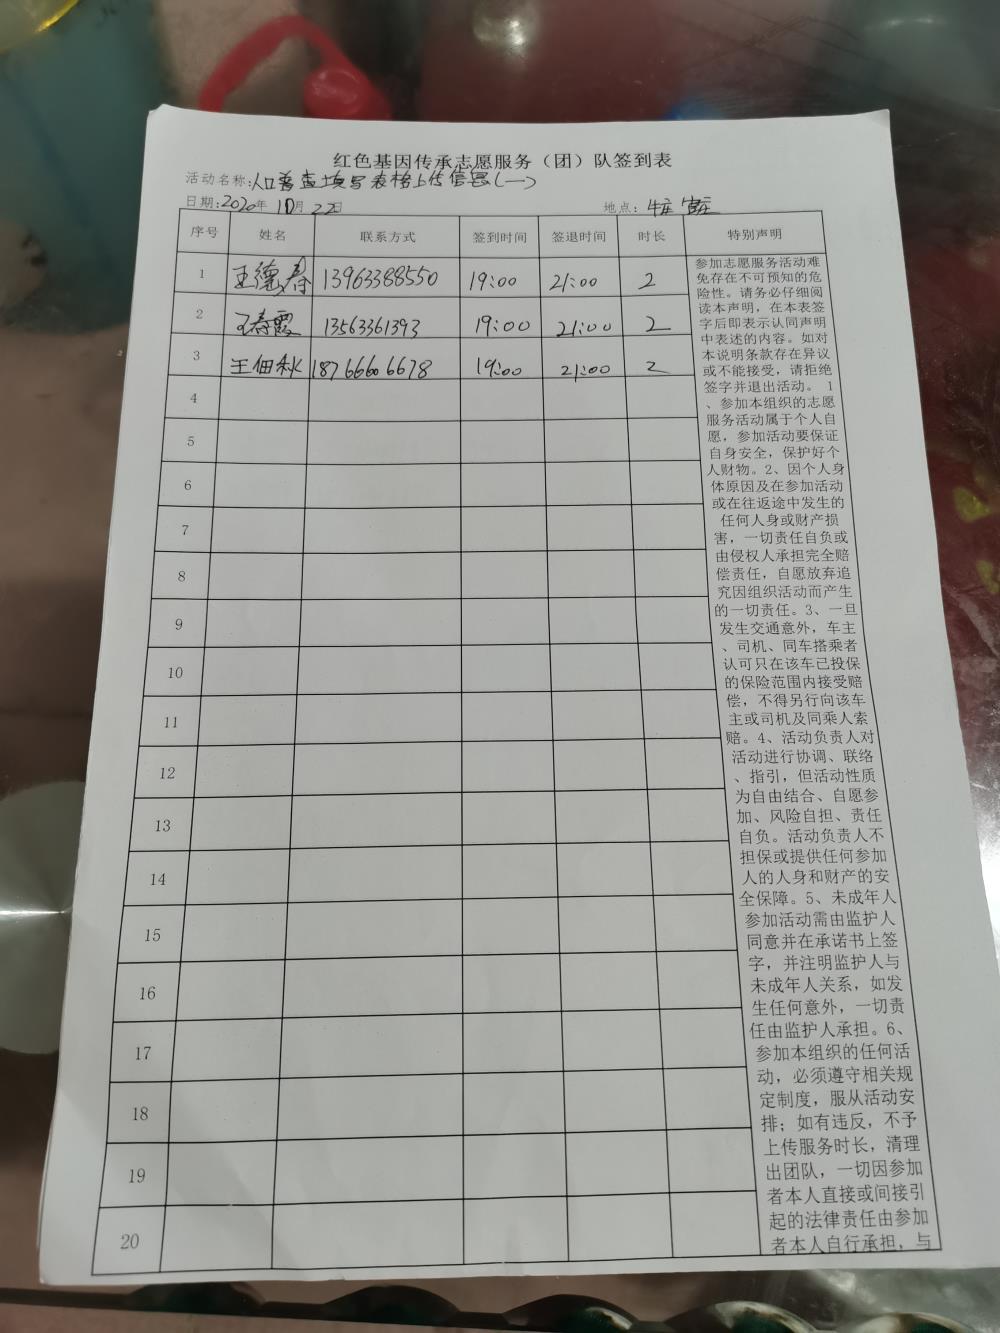 红色基因传承志愿服务（团）队签到表
活动名称:人口普查填写表格上传信息(一)
日期:2020年 10月 22日 地点:
序号 姓名 联系方式 签到时间 签退时间 时长 特别声明
1 王德春 13963388550 19:00 21:00 2
2 王春霞 13563361393 19:00 21:00 2
3 王佃秋 18766606678 19:00 21:00 2
4
5
6
7
8
9
10
11
12
13
14
15
16
17
18
19
20
参加志愿服务活动难
免存在不可预知的危
险性。请务必仔细阅
读本声明，在本表签
字后即表示认同声明
中表述的内容。如对
本说明条款存在异议
或不能接受，请拒绝
签字并退出活动。 1
、参加本组织的志愿
服务活动属于个人自
愿，参加活动要保证
自身安全，保护好个
人财物。2、因个人身
体原因及在参加活动
或在往返途中发生的
任何人身或财产损
害，一切责任自负或
由侵权人承担完全赔
偿责任，自愿放弃追
究因组织活动而产生
的一切责任。3、一旦
发生交通意外，车主
、司机、同车搭乘者
认可只在该车已投保
的保险范围内接受赔
偿，不得另行向该车
主或司机及同乘人索
赔。4、活动负责人对
活动进行协调、联络
、指引，但活动性质
为自由结合、自愿参
加、风险自担、责任
自负。活动负责人不
担保或提供任何参加
人的人身和财产的安
全保障。5、未成年人
参加活动需由监护人
同意并在承诺书上签
字，并注明监护人与
未成年人关系，如发
生任何意外，一切责
任由监护人承担。6、
参加本组织的任何活
动，必须遵守相关规
定制度，服从活动安
排；如有违反，不予
上传服务时长，清理
出团队，一切因参加
者本人直接或间接引
起的法律责任由参加
者本人自行承担，与